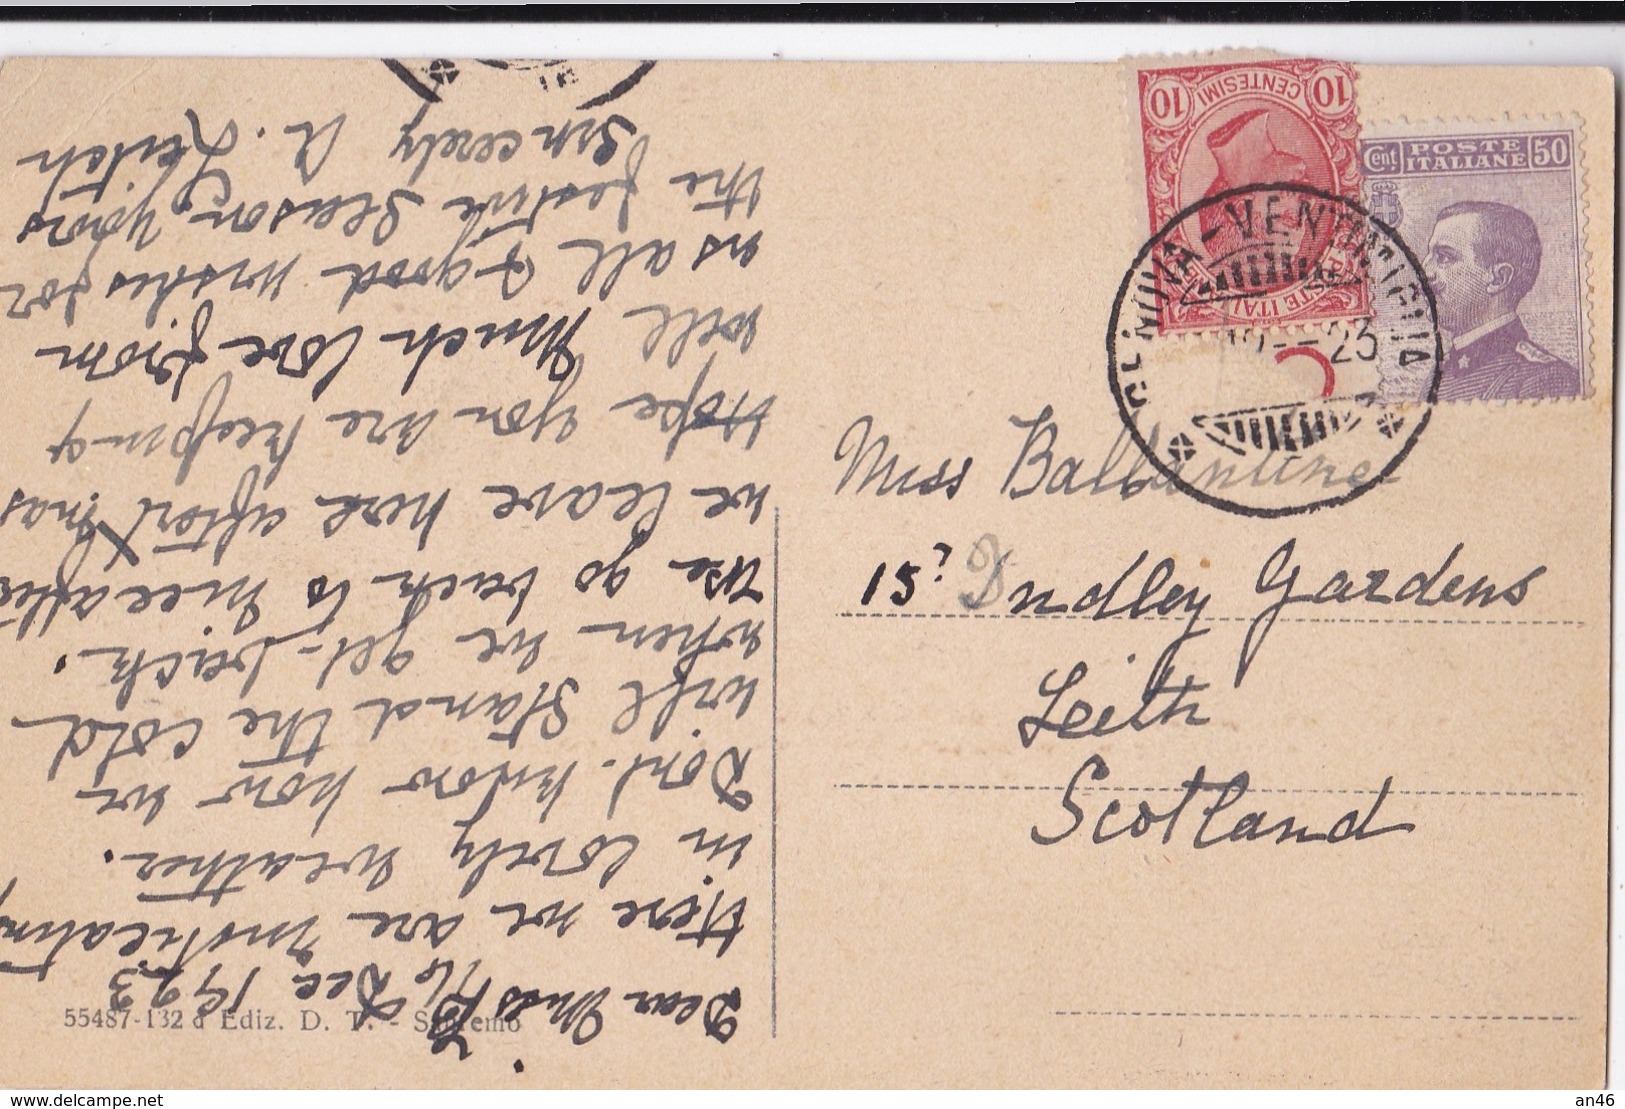 Dear Miss B
16 Dec 1923
Here we are
in lovely weather.
Dont know how we
will Stand the cold
when we get back.
we go back to Nice after
we leave here after Xmas
Hope you are keeping
well Much love from
us all & good wishes for
the festive Season yours
Sincerely A. Leitch
10 CENTESIMI 10
Cent. POSTE ITALIANE 50
GENOVA-VENTIMIGLIA
23
Miss Ballantine
15? Dudley Gardens
Leith
Scotland
55487-132 d Ediz. D. T. - Sanremo
www.delcampe.net
an46